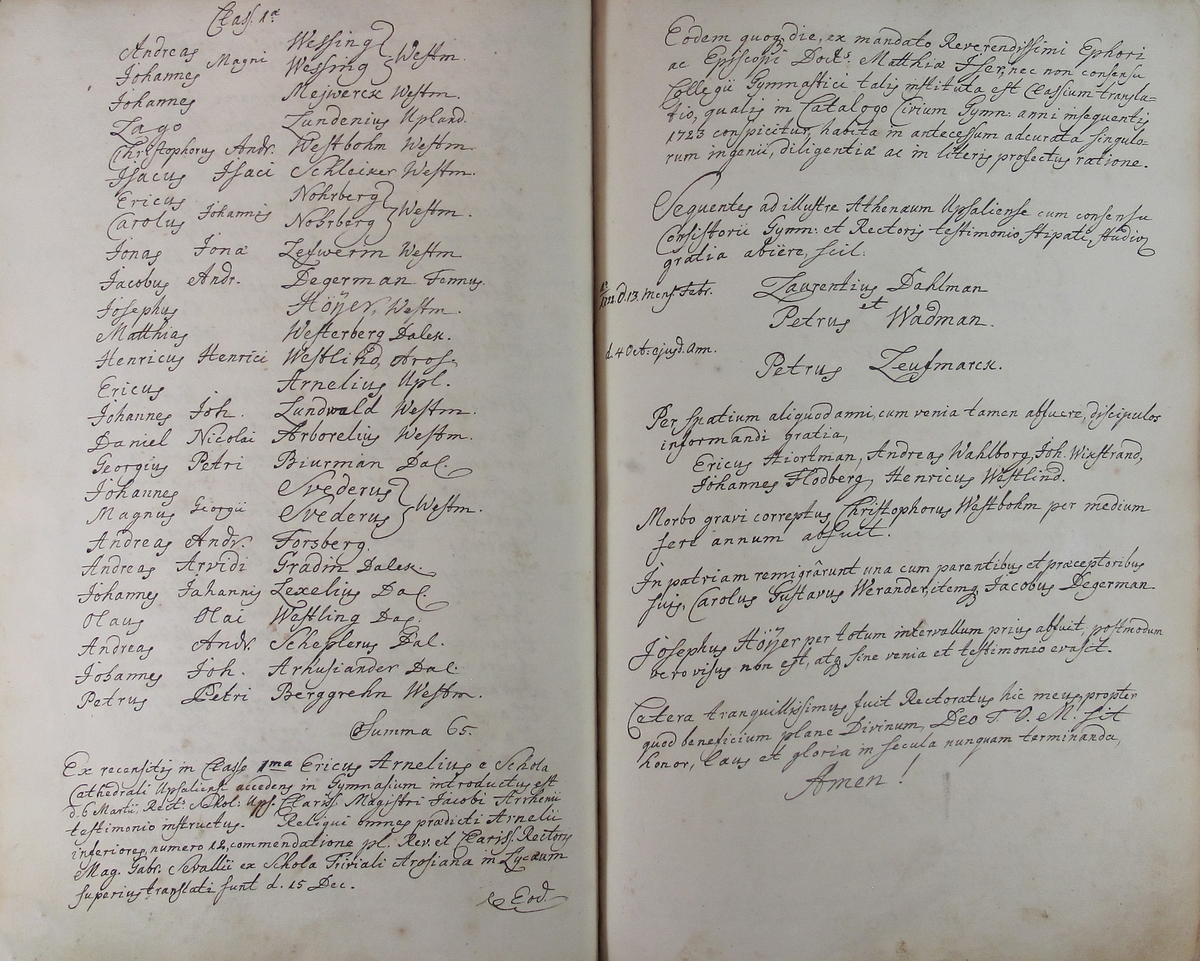 Class. 1.æ
Andreas Magni Wessing } Westm.
Johannes Wessing
Johannes Mejwerck Westm.
Zago Lundenius Upland.
Christophorus Andr. Westbohm Westm.
Isacus Isaci Schleicker Westm.
Ericus Johannis Nohrberg } Westm.
Carolus Nohrberg
Jonas Jonæ Lefwerin Westm
Jacobus Andr. Degerman Fennus.
Josephus Höijer, Westm.
Matthias Westerberg Dalek.
Henricus Henrici Westlind, Aros.
Ericus Arnelius Upl.
Johannes Joh. Lundwald Westm.
Daniel Nicolai Arborelius Westm.
Georgius Petri Biurman Dal.
Johannes Georgii Svederus } Westm.
Magnus Svederus
Andreas Andr. Forsberg.
Andreas Arvidi Gradin Dalek.
Johannes Johannis Lexelius Dal
Olaus Olai Westling Dal.
Andreas Andr. Scheplerus Dal.
Johannes Joh. Arhusiander Dal.
Petrus Petri Berggrehn Westm.
Summa 65.
Ex recensitis in Classe 1ma Ericus Arnelius e Schola
Cathedrali Upsaliensi accedens in Gymnasium introductus est
d. 6 Martii, Rect: Schol: Ups. Clariss. Magistri Jacobi Arrhenii
testimonio instructus. Reliqui omnes prædicti Arnelii
inferiores, numero 12, commendatione pl. Rev. et Clariss. Rectoris
Mag. Gabr. Sevallii ex Schola Triviali Arosiana in Lycæum
superius translati sunt d. 15 Dec.
Eod.
Eodem quoq die, ex mandato Reverendissimi Ephori
ac Episcopi Doct.s Matthiæ Iser, nec non consensu
Collegii Gymnastici talis instituta est Classium transla=
tio, qualis in Catalogo Civium Gymn: anni insequentis
1723 conspicitur, habita in antecessum adcurata singulo-
rum ingenii, diligentiæ ac in literis profectus ratione.
Sequentes ad illustre Athenæum Upsaliense cum consensu
Consistorii Gymn: et Rectoris testimonio stipati, studior
gratia abiere, scil:
d. 13. Mens. Febr. Laurentius Dahlman
et
Petrus Wadman.
d. 4 Oct. ejusd. Ann. Petrus Leufmarck.
Per spatium aliquod anni, cum venia tamen abfuere, discipulos
informandi gratia,
Ericus Hiortman, Andreas Wahlborg, Joh. Wikstrand,
Johannes Flodberg, Henricus Westlind.
Morbo gravi correptus Christophorus Westbohm per medium
fere annum abfuit.
In patriam remigrârunt una cum parentibus et præceptoribus
suis, Carolus Gustavus Werander, itemq Jacobus Degerman
Josephus Höijer per totum intervallum prius abfuit, postmodum
vero visus non est, atq sine venia et testimonio evasit.
Cætera tranquillissimus fuit Rectoratus hic meus, propter
quod beneficium plane Divinum, Deo T. O. M. sit
honor, laus et gloria in secula nunquam terminanda,
Amen!